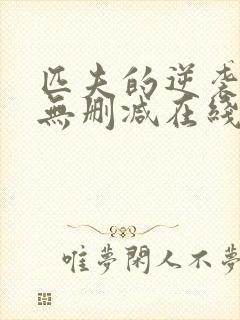 匹夫的逆袭
無删减在綫
唯夢閑人不夢